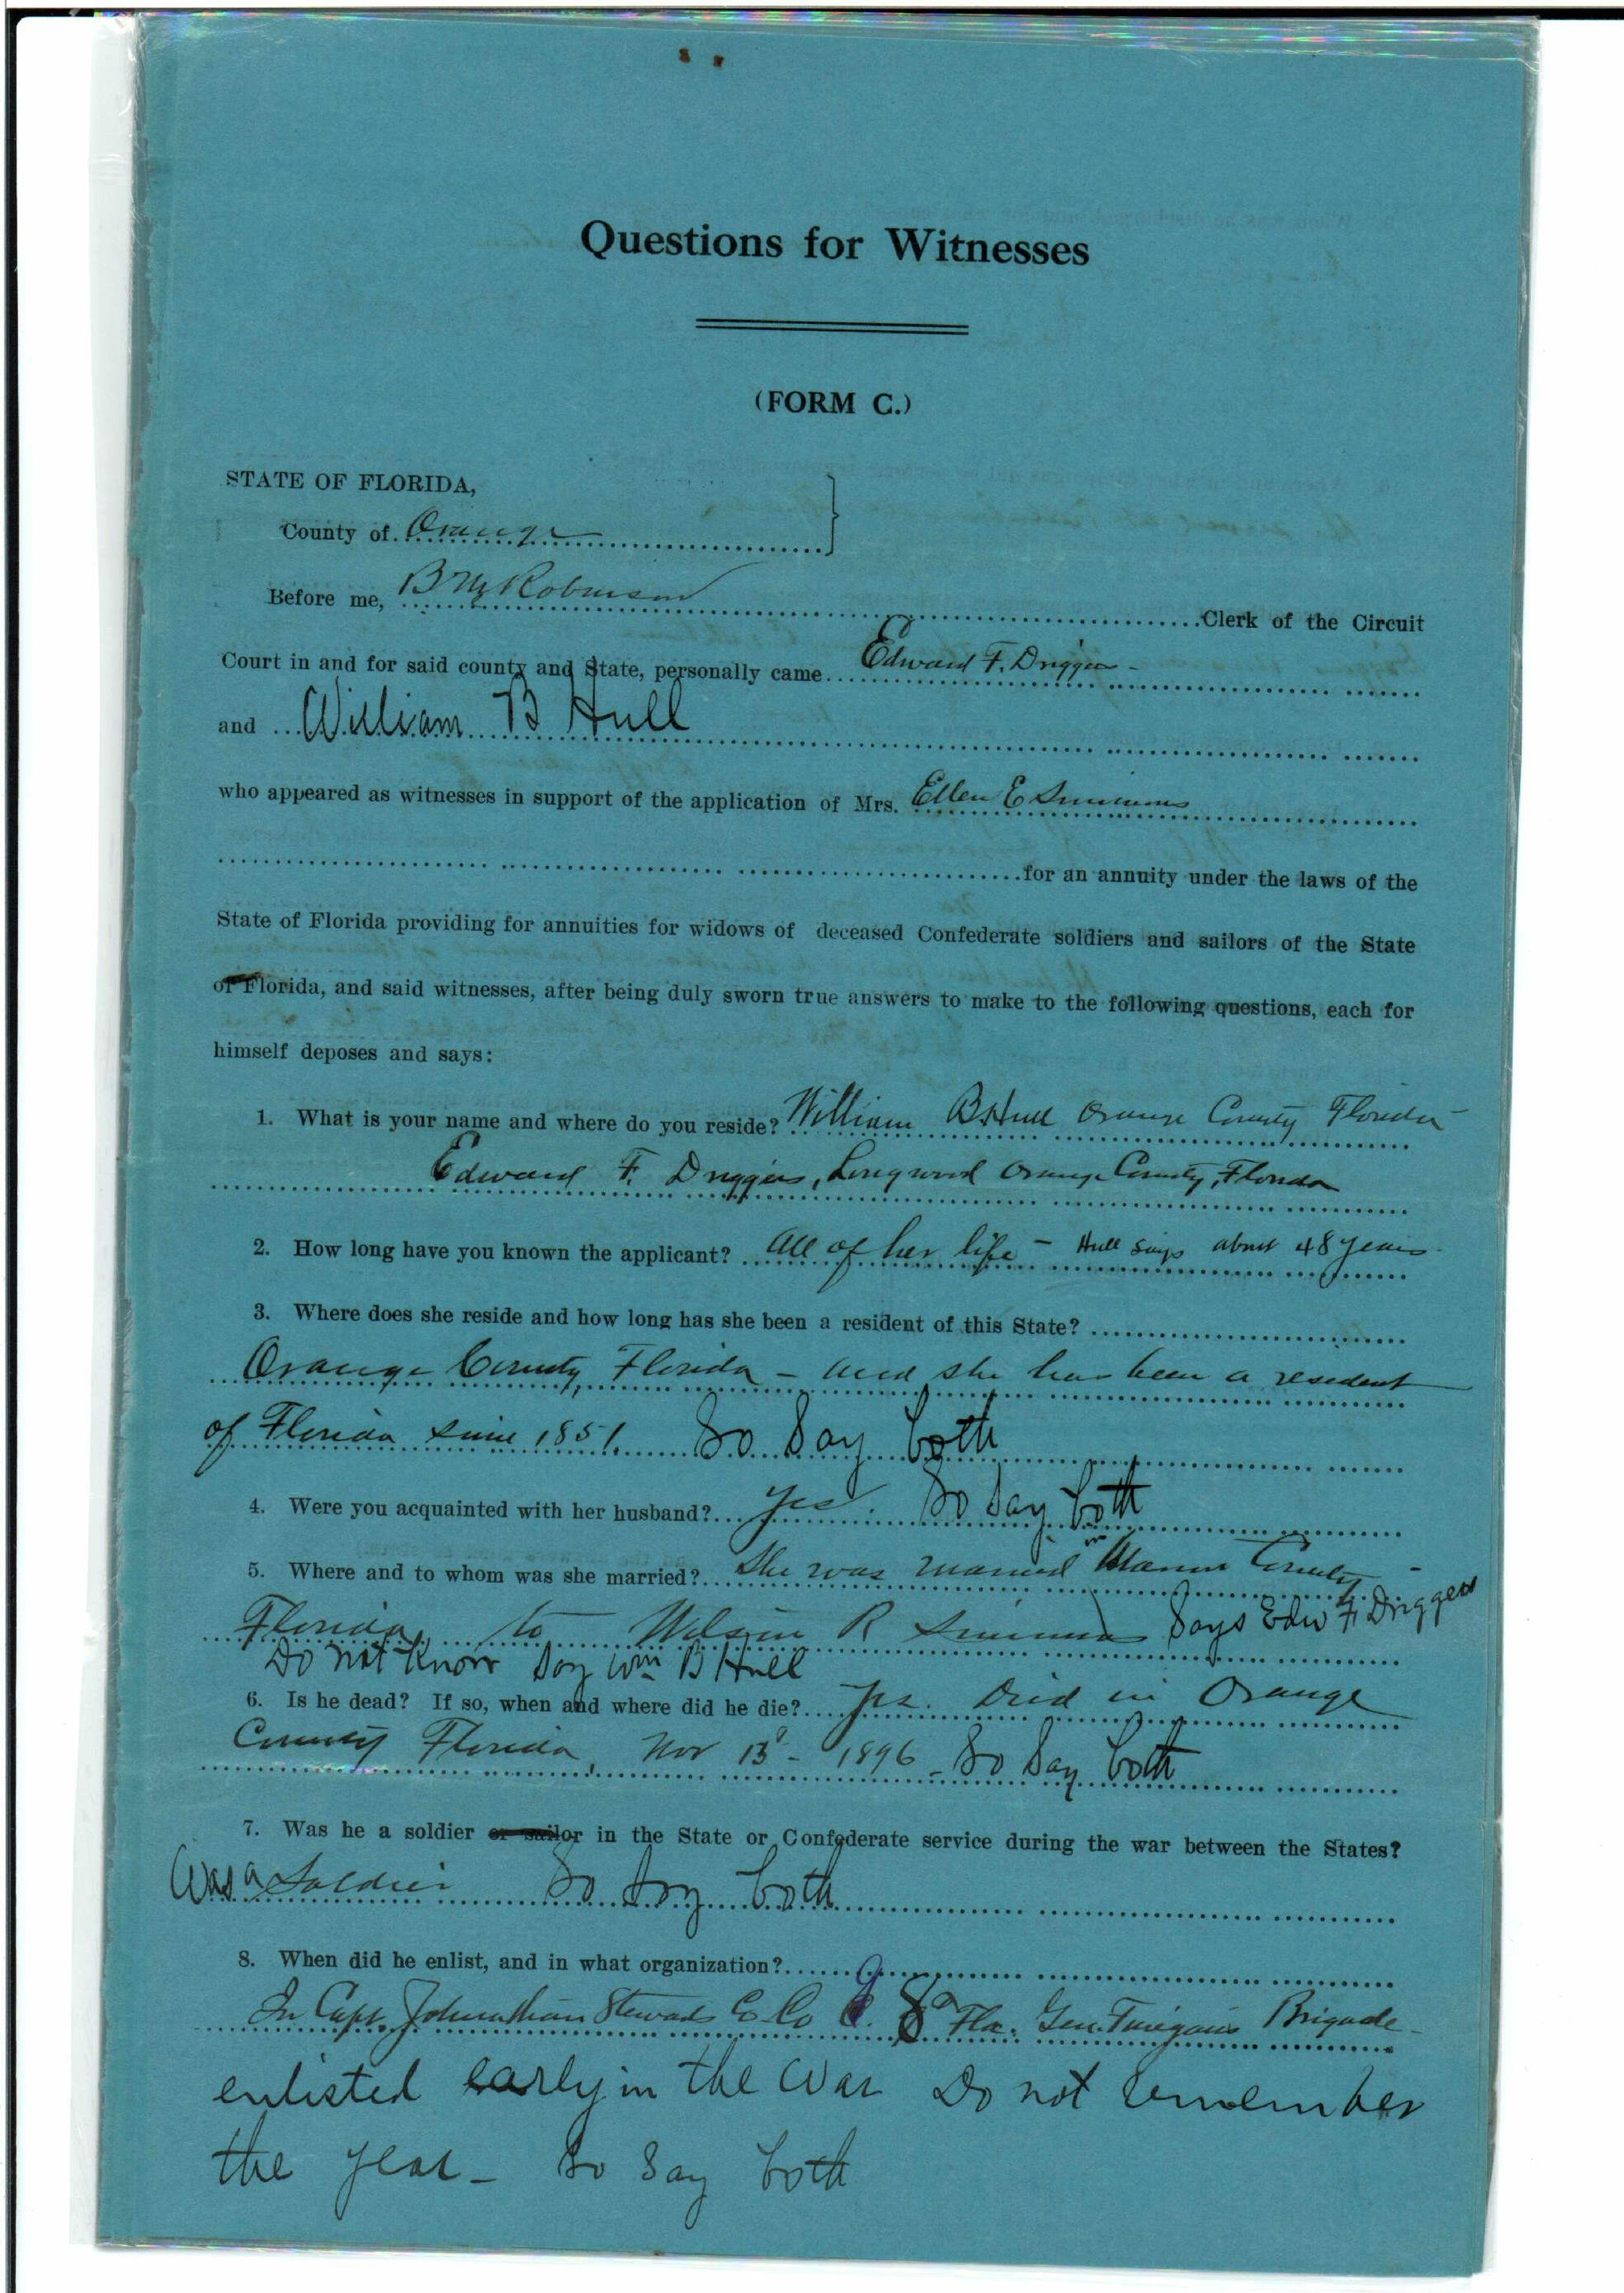 Questions for Witnesses
(FORM C.)
STATE OF FLORIDA,
County of Orange
Before me, B M Robinson Clerk of the Circuit
Court in and for said county and State, personally came Edward F. Driggers -
and William B Hull
who appeared as witnesses in support of the application of Mrs. Ellen E Simmons
for an annuity under the laws of the
State of Florida providing for annuities for widows of deceased Confederate soldiers and sailors of the State
of Florida, and said witnesses, after being duly sworn true answers to make to the following questions, each for
himself deposes and says:
1. What is your name and where do you reside? William B Hull Orange County Florida -
Edward F. Driggers, Longwood Orange County, Florida
2. How long have you known the applicant? All of her life - Hull says about 48 years -
3. Where does she reside and how long has she been a resident of this State?
Orange County, Florida - and she has been a resident
of Florida since 1851. So Say both
4. Were you acquainted with her husband? Yes. So Say both
5. Where and to whom was she married? She was married in County -
Florida, to R Simmons Says Edw F Driggers
Do not Know Say Wm B Hull
6. Is he dead? If so, when and where did he die? Yes. Died in Orange
County Florida, Nov 1896 - So Say both
7. Was he a soldier or sailor in the State or Confederate service during the war between the States?
Was a Soldier So Say both
8. When did he enlist, and in what organization?
In Capt. Stewards Co 8 Fla. Gen. Brigade -
enlisted early in the War Do not remember
the year - So Say both